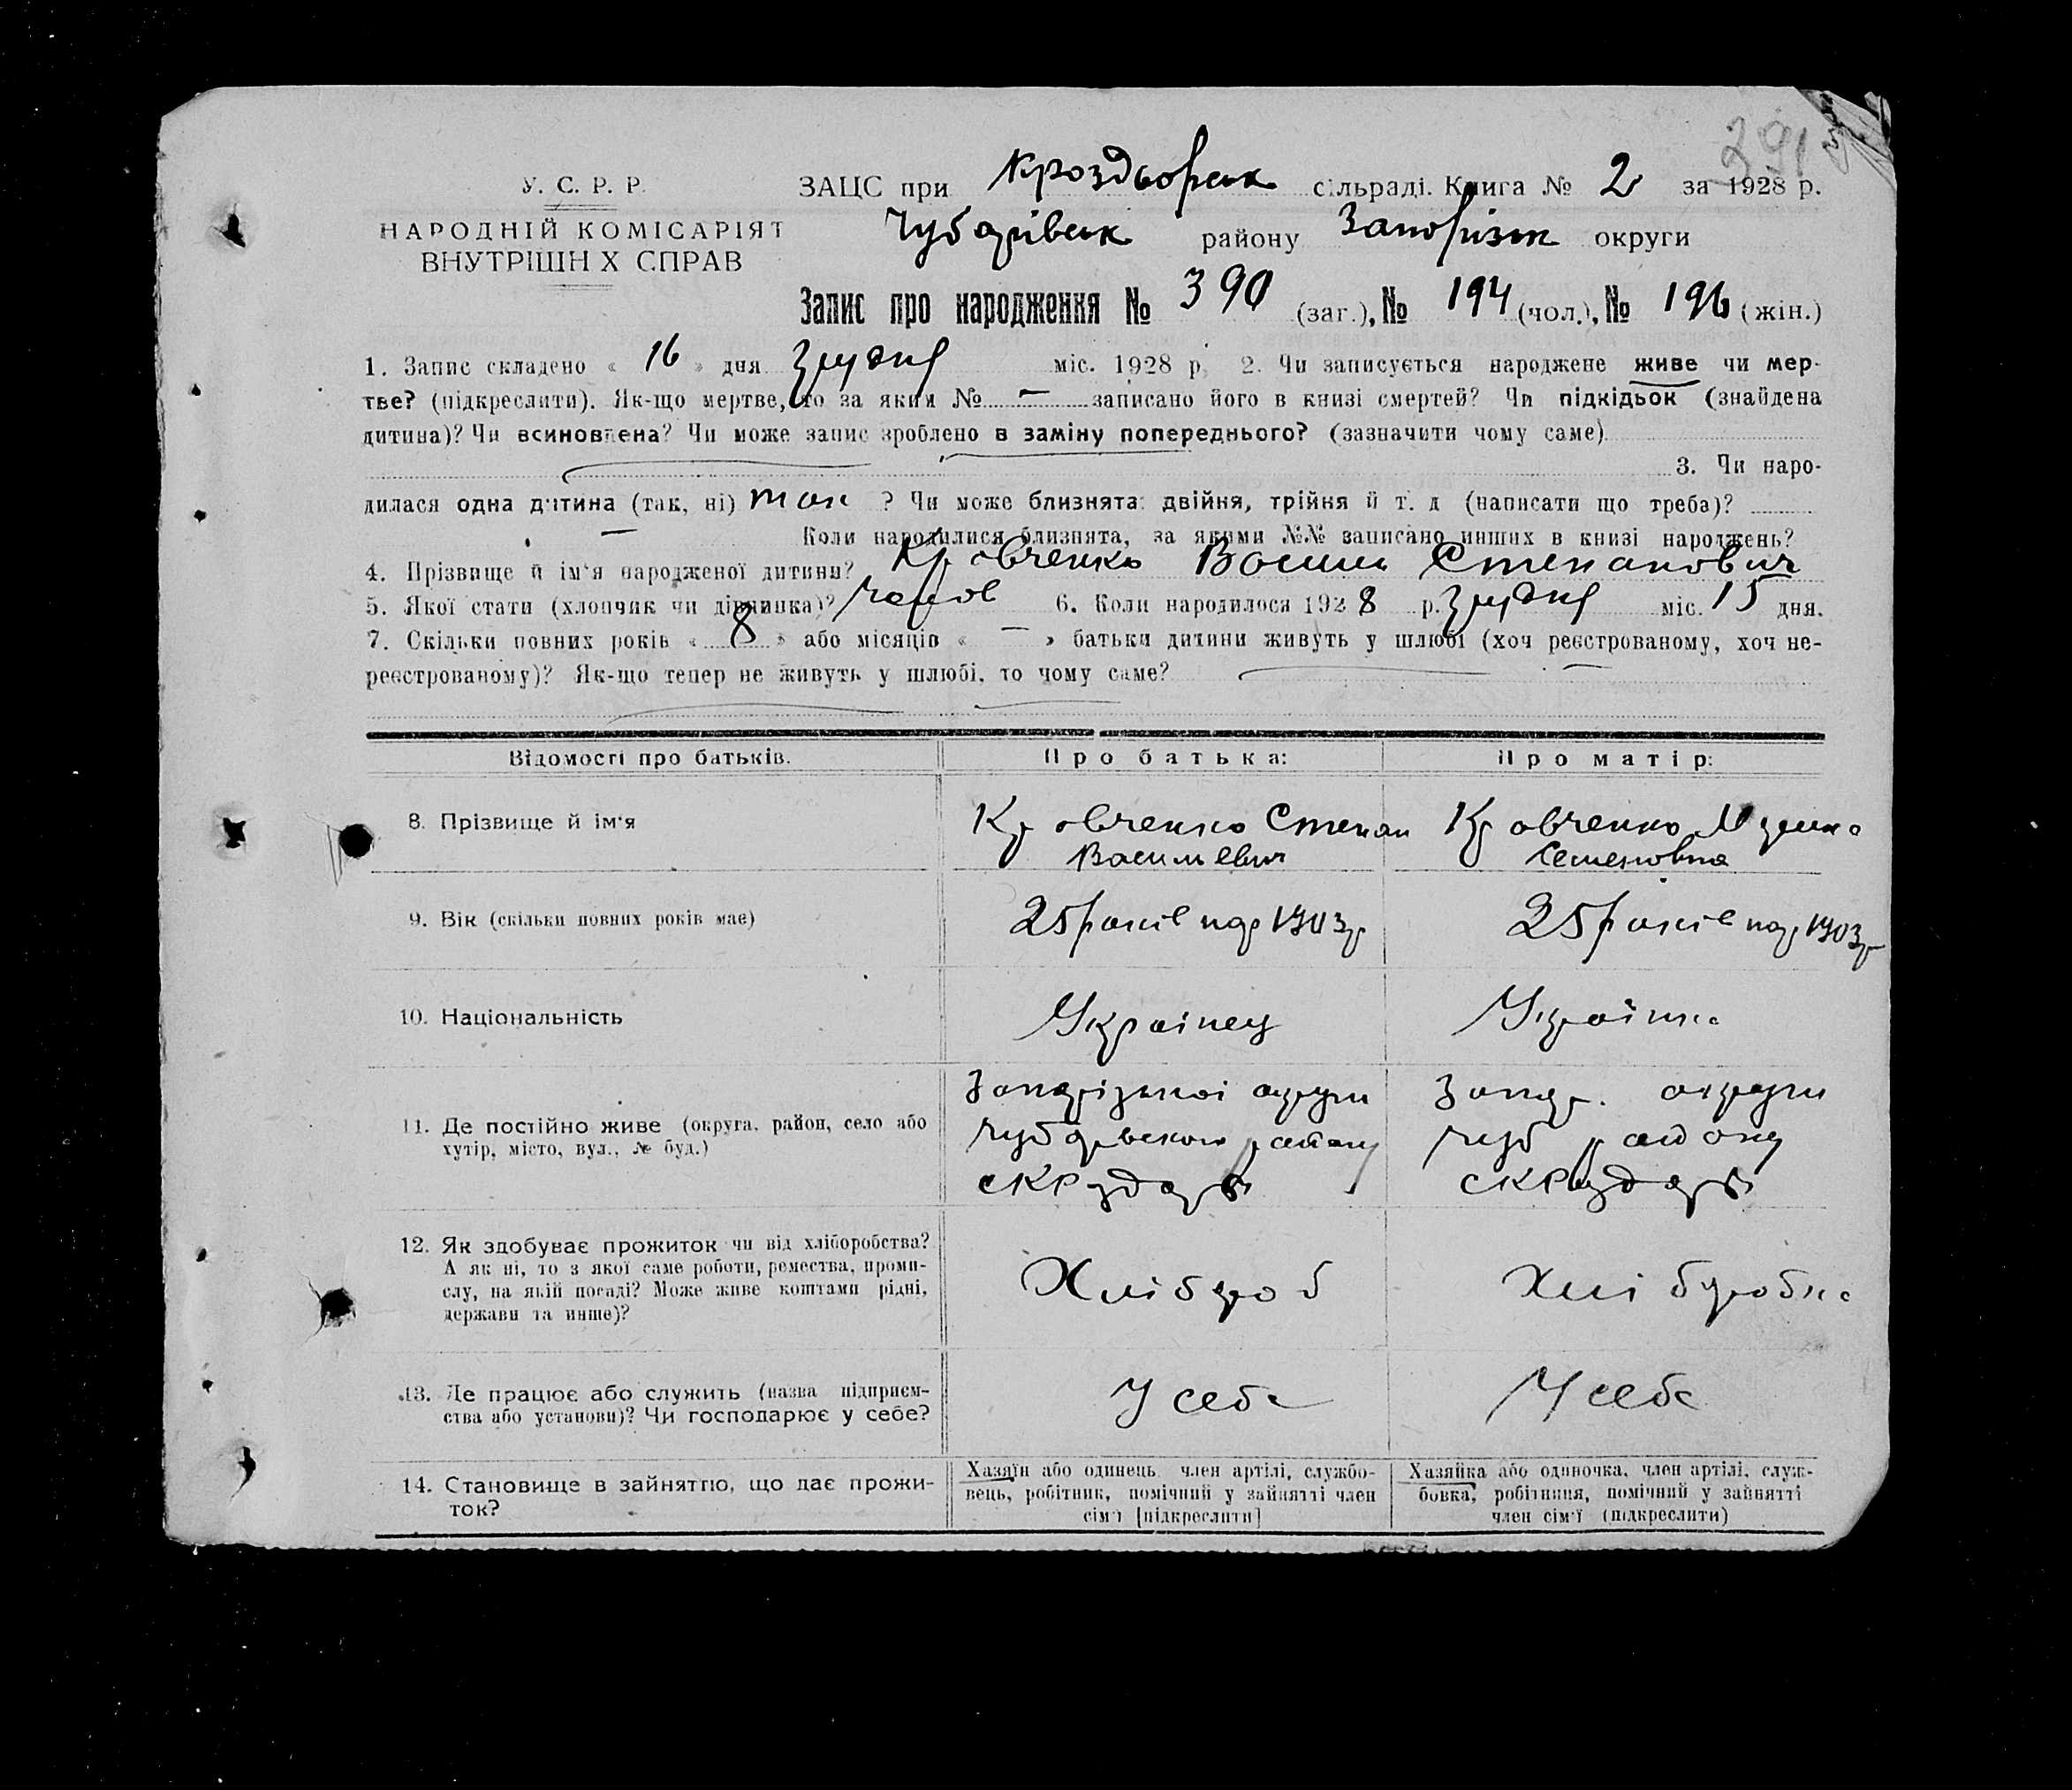 291
У. С. Р. Р.
НАРОДНІЙ КОМІСАРІЯТ
ВНУТРІШН Х СПРАВ
ЗАЦС при Кроздворськ сільраді. Книга № 2 за 1928 р.
Чубарівськ району Запоріжж округи
Запис про народження № 390 (заг.), № 194 (чол.), № 196 (жін.)
1. Запис складено « 16 » дня Грудня міс. 1928 р. 2. Чи записується народжене живе чи мер-
тве? (підкреслити). Як-що мертве, то за яким № — записано його в книзі смертей? Чи підкідьок (знайдена
дитина)? Чи всиновлена? Чи може запис зроблено в заміну попереднього? (зазначити чому саме)
3. Чи наро-
дилася одна дитина (так, ні) так ? Чи може близнята: двійня, трійня й т. д (написати що треба)?
— Коли народилися близнята, за якими №№ записано инших в книзі народжень?
4. Прізвище й ім'я народженої дитини? Кравченко Василь Степанович
5. Якої стати (хлопчик чи дівчинка)? 6. Коли народилося 1928 р. Грудня міс. 15 дня.
7. Скільки повних років « 8 » або місяців « — » батьки дитини живуть у шлюбі (хоч реєстрованому, хоч не-
реєстрованому)? Як-що тепер не живуть у шлюбі, то чому саме?
Відомості про батьків. Про батька: Про матір:
8. Прізвище й ім'я Кравченко Степан Васильевич Кравченко Семеновна
9. Вік (скільки повних років має) 25 років нар 1903 р 25 років нар 1903 р
10. Національність Українец Українка
11. Де постійно живе (округа, район, село або
хутір, місто, вул., № буд.) Запорізької округи Чубарівського району Запор. округи Чуб району
12. Як здобуває прожиток чи від хліборобства?
А як ні, то з якої саме роботи, ремества, проми-
слу, на якій посаді? Може живе коштами рідні,
держави та инше)? Хлібороб Хліборобка
13. Де працює або служить (назва підприєм-
ства або установи)? Чи господарює у себе? У себе У себе
14. Становище в зайняттю, що дає прожи-
ток?
Хазяїн або одинець, член артілі, службо-
вець, робітник, помічний у зайнятті член
сім'ї [підкреслити]
Хазяйка або одиночка, член артілі, служ-
бовка, робітниця, помічний у зайнятті
член сім'ї (підкреслити)